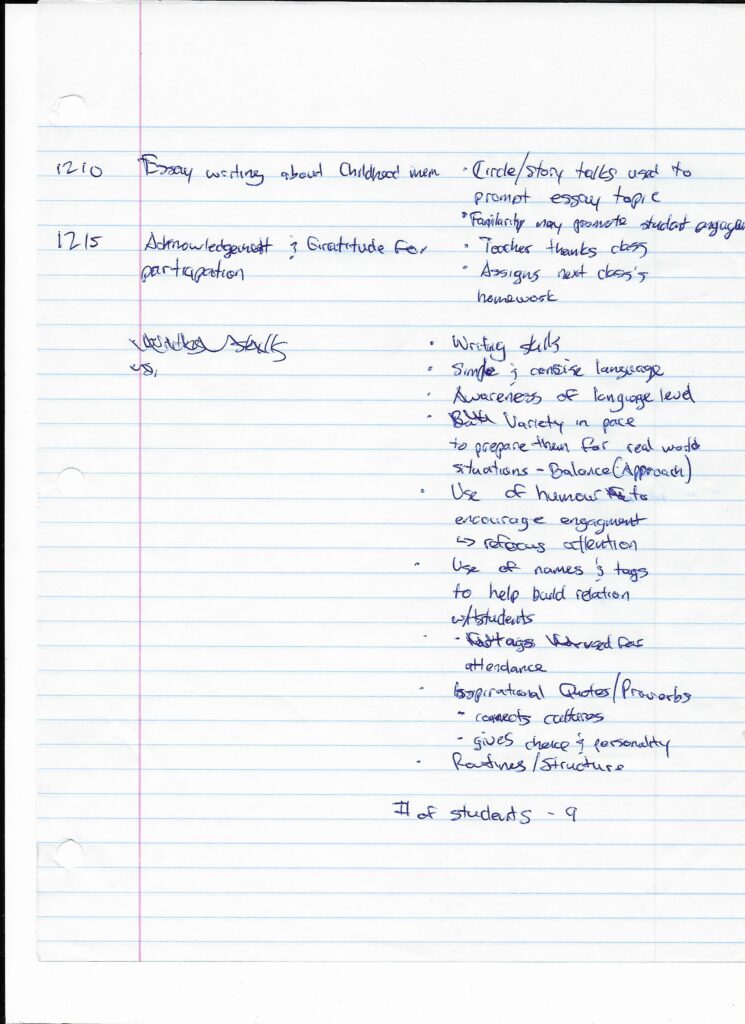 1210 Essay writing about Childhood mem · Circle/Story talks used to
prompt essay topic
· Familiarity may promote student engagem
1215 Acknowledgement & Gratitude for · Teacher thanks class
participation · Assigns next class's
homework
· Writing skills
vs.
· Simple & concise language
· Awareness of language level
· Variety in pace
to prepare them for real world
situations - Balance (Approach)
· Use of humour to
encourage engagment
↳ refocus attention
· Use of names & tags
to help build relation
w/ students
· - tags used for
attendance
· Inspirational Quotes/Proverbs
- connects cultures
- gives choice & personality
· Routines/Structure
# of students - 9